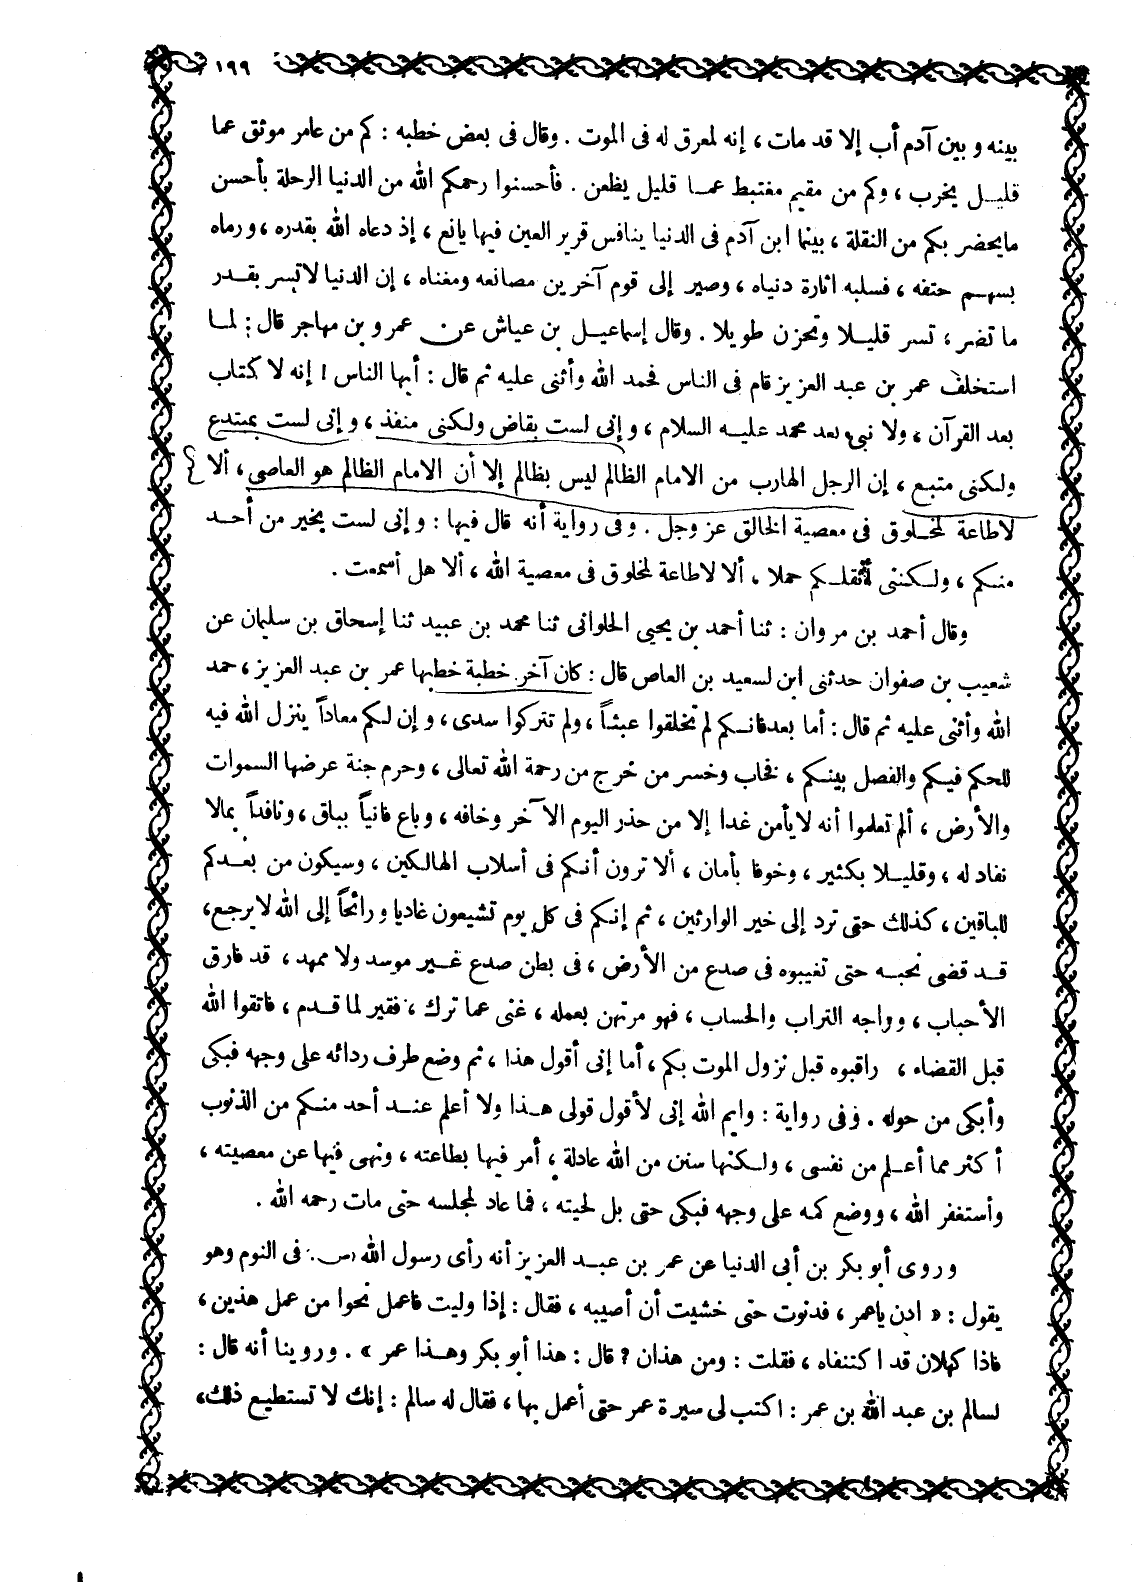 ١٩٩
بينه و بين آدم أب إلا قد مات ، إنه لمعرق له فى الموت . وقال فى بعض خطبه : كم من عامر موثق عما
قليل يخرب ، وكم من مقيم مغتبط عما قليل يظعن . فأحسنوا رحمكم الله من الدنيا الرحلة بأحسن
مايحضر بكم من النقلة ، بينما ابن آدم فى الدنيا ينافس قرير العين فيها يانع ، إذ دعاه الله بقدره ، ورماه
بسهم حتفه ، فسلبه اثارة دنياه ، وصير إلى قوم آخرين مصانعه ومغناه ، إن الدنيا لاتسر بقدر
ما تضر ، تسر قليلا وتحزن طويلا . وقال إسماعيل بن عياش عن عمرو بن مهاجر قال : لما
استخلف عمر بن عبد العزيز قام فى الناس فحمد الله وأثنى عليه ثم قال : أيها الناس ! إنه لا كتاب
بعد القرآن ، ولا نبى بعد محمد عليه السلام ، و إنى لست بقاض ولكنى منفذ ، و إنى لست بمبتدع
ولكنى متبع ، إن الرجل الهارب من الامام الظالم ليس بظالم إلا أن الامام الظالم هو العاصى ، ألا
لاطاعة لمخلوق فى معصية الخالق عز وجل . وفى رواية أنه قال فيها : و إنى لست بخير من أحد
منكم ، ولكننى أثقلكم حملا ، ألا لاطاعة لمخلوق فى معصية الله ، ألا هل أسمعت .
وقال أحمد بن مروان : ثنا أحمد بن يحيى الحلوانى ثنا محمد بن عبيد ثنا إسحاق بن سليمان عن
شعيب بن صفوان حدثنى ابن لسعيد بن العاص قال : كان آخر خطبة خطبها عمر بن عبد العزيز ، حمد
الله وأثنى عليه ثم قال : أما بعد فانكم لم تخلقوا عبثاً ، ولم تتركوا سدى ، و إن لكم معاداً ينزل الله فيه
للحكم فيكم والفصل بينكم ، فخاب وخسر من خرج من رحمة الله تعالى ، وحرم جنة عرضها السموات
والأرض ، ألم تعلموا أنه لا يأمن غدا إلا من حذر اليوم الآخر وخافه ، وباع فانياً بباق ، ونافداً بمالا
نفاد له ، وقليلا بكثير ، وخوفا بأمان ، ألا ترون أنكم فى أسلاب الهالكين ، وسيكون من بعدكم
للباقين ، كذلك حتى ترد إلى خير الوارثين ، ثم إنكم فى كل يوم تشيعون غاديا و رائحاً إلى الله لا يرجع ،
قد قضى نحبه حتى تغيبوه فى صدع من الأرض ، فى بطن صدع غير موسد ولا ممهد ، قد فارق
الأحباب ، وواجه التراب والحساب ، فهو مرتهن بعمله ، غنى عما ترك ، فقير لما قدم ، فاتقوا الله
قبل القضاء ، راقبوه قبل نزول الموت بكم ، أما إنى أقول هذا ، ثم وضع طرف ردائه على وجهه فبكى
وأبكى من حوله . وفى رواية : وايم الله إنى لأقول قولى هذا ولا أعلم عند أحد منكم من الذنوب
أكثر مما أعلم من نفسى ، ولكنها سنن من الله عادلة ، أمر فيها بطاعته ، ونهى فيها عن معصيته ،
وأستغفر الله ، ووضع كمه على وجهه فبكى حتى بل لحيته ، فما عاد لمجلسه حتى مات رحمه الله .
وروى أبو بكر بن أبى الدنيا عن عمر بن عبد العزيز أنه رأى رسول الله (س) فى النوم وهو
يقول : « ادن ياعمر ، فدنوت حتى خشيت أن أصيبه ، فقال : إذا وليت فاعمل نحوا من عمل هذين ،
فاذا كهلان قد اكتنفاه ، فقلت : ومن هذان ؟ قال : هذا أبو بكر وهذا عمر » . وروينا أنه قال :
لسالم بن عبد الله بن عمر : اكتب لى سيرة عمر حتى أعمل بها ، فقال له سالم : إنك لا تستطيع ذلك ،